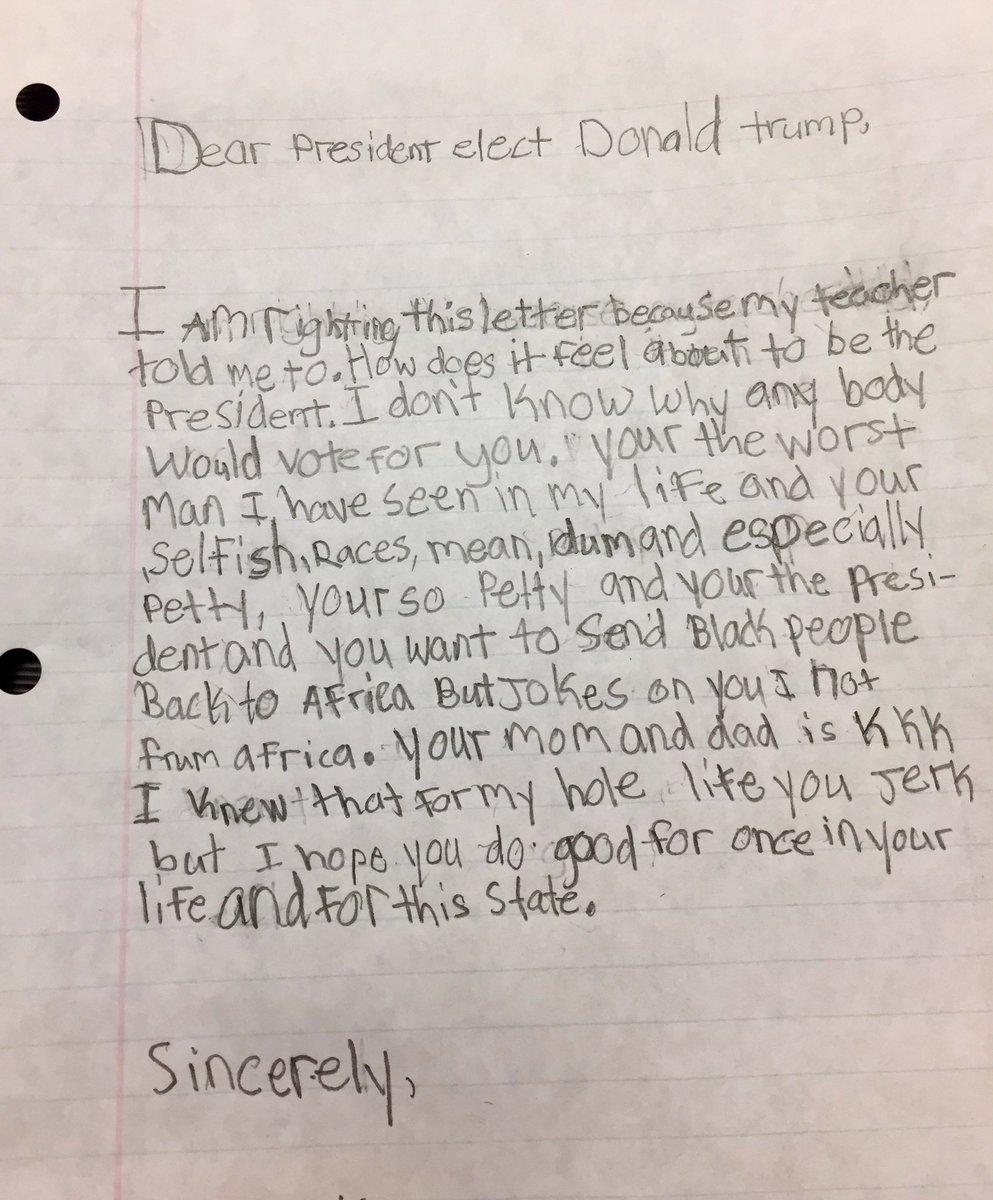 Dear President elect Donald trump,
I AM righting this letter because my teacher
told me to. How does it feel to be the
President. I don't know why any body
Would vote for you. your the worst
Man I have seen in my life and your
selfish, Races, mean, dum and especially
Petty, your so Petty and your the Presi-
dent and you want to Send Black people
Back to Africa But Jokes on you I not
frum africa. your mom and dad is KKK
I knew that for my hole life you Jerk
but I hope you do good for once in your
life and For this State.
Sincerely,